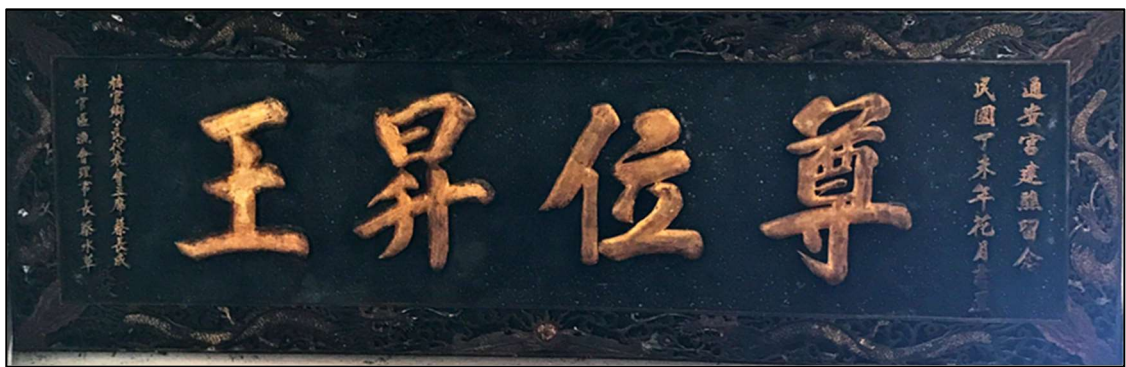 通安宮建醮留念
民國丁未年花月
尊位昇王
梓官鄉民代表會主席蔡長
梓官區漁會理事長蔡水草